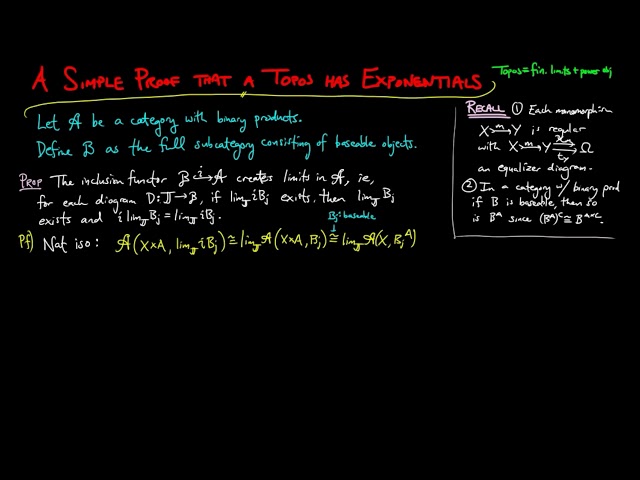 A SIMPLE PROOF THAT A TOPOS HAS EXPONENTIALS
Topos = fin. limits + power obj
Let 𝒜 be a category with binary products.
Define ℬ as the full subcategory consisting of baseable objects.
PROP The inclusion functor ℬ →ⁱ 𝒜 creates limits in 𝒜, ie,
for each diagram D: 𝕁 → ℬ, if lim_𝕁 iB_j exists, then lim_𝕁 B_j
exists and i lim_𝕁 B_j = lim_𝕁 iB_j.
B_j baseable
↓
Pf) Nat iso: 𝒜(X×A, lim_𝕁 iB_j) ≅ lim_𝕁 𝒜(X×A, B_j) ≅ lim_𝕁 𝒜(X, B_j^A)
RECALL ① Each monomorphism
X →ᵐ Y is regular
with X →ᵐ Y ⇉ Ω
an equalizer diagram.
② In a category w/ binary prod
if B is baseable, then so
is B^A since (B^A)^C ≅ B^{A×C}.